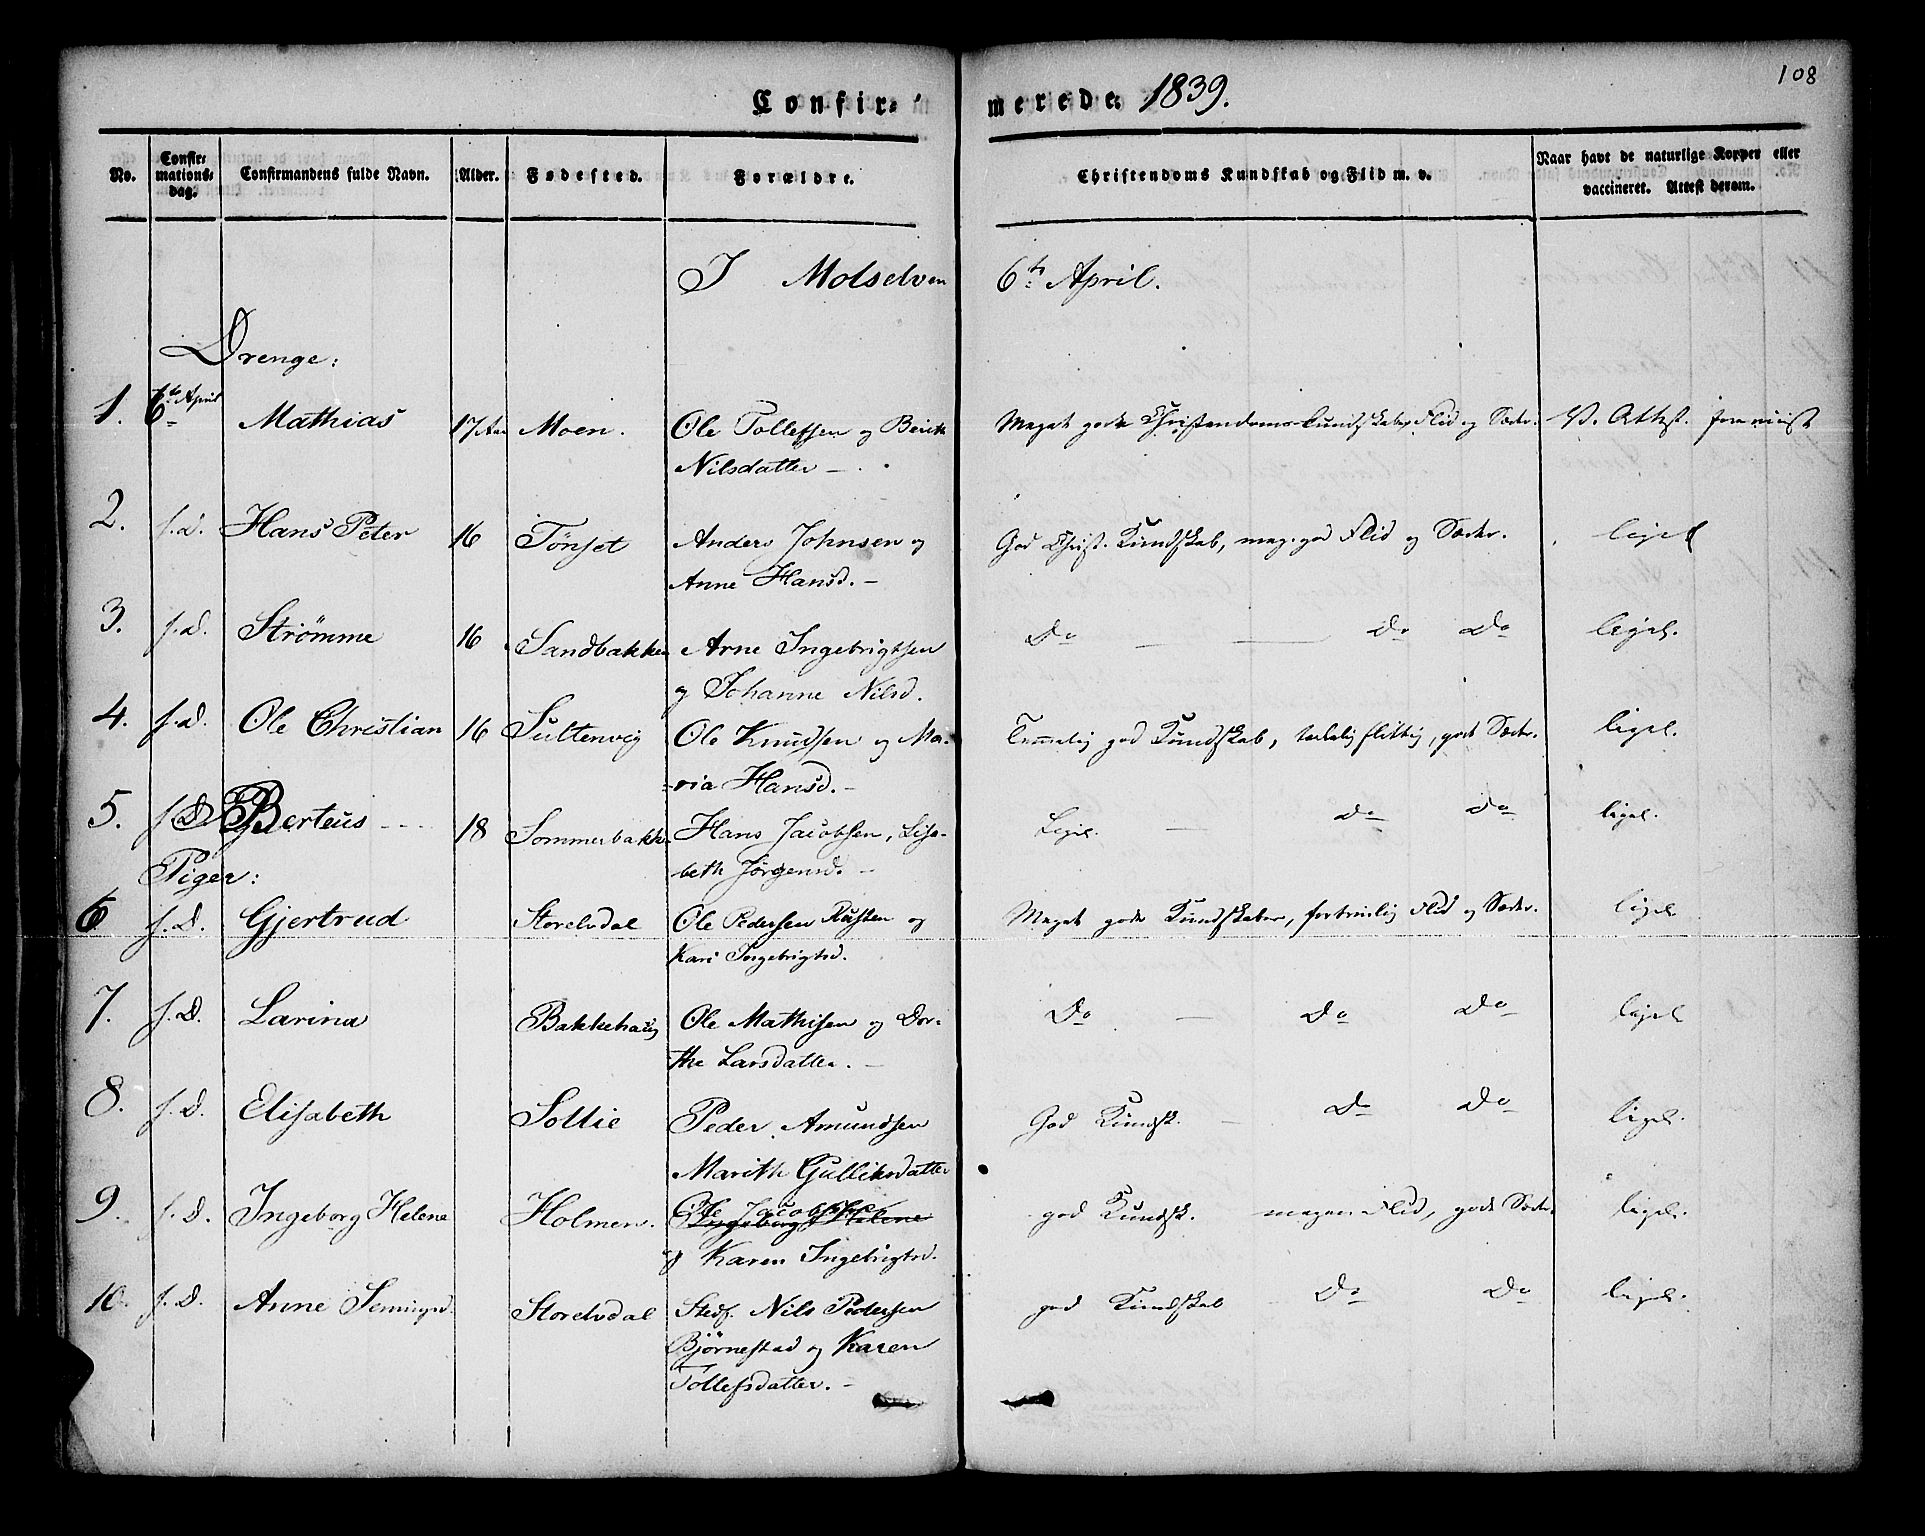 108
Confir- merede 1839.
No. Confirmationsdag. Confirmandens fulde Navn. Alder. Fødested. Forældre. Christendoms Kundskab og Flid m. v. Naar havt de naturlige Kopper eller vaccineret. Attest derom.
I Molselven 6te April.
Drenge:
1. 6te April Mathias 17 Aar Moen. Ole Tollefsen og Berith Meget gode Christendoms-Kundskaber, Flid og Sæder. V. Attest. foreviist
Nilsdatter —.
2. s. d. Hans Peter 16 Tönset Anders Johnsen og God Christ. Kundskab, meg. god Flid og Sæder. ligel
Anne Hansd. —
3. s. d. Strömme 16 Sandbakken Arne Ingebrigtsen Do — — Do Do ligel.
og Johanne Nilsd.
4. s. d. Ole Christian 16 Sultenvig Ole Knudsen og Ma- Temmelig god Kundskab, taalelig flittig, gode Sæder. ligel.
-ria Hansd. —
5. s. D. Berteus - - - 18 Sommerbakk. Hans Jacobsen, Lise- Ligel. — Do Do ligel.
beth Jörgensd. —
Piger:
6 s. D. Gjertrud Storelvdal Ole Pedersen Rusten og Meget gode Kundskaber, fortrinlig Flid og Sæder. ligel.
Kari Ingebrigtsd.
7. s. D. Larina Bakkehaug Ole Mathisen og Dor- Do — Do Do ligel
the Larsdatter. —
8. s. D. Elisabeth Sollie Peder Amundsen God Kundsk. — Do Do ligel.
Marith Gulliksdatter
9. s. D. Ingeborg Helene Holmen. Ole Jacobsen god Kundsk. megen Flid, gode Sæder. ligel.
Ingeborg Helene
og Karen Ingebrigtsd.
10. s. D. Anne Semingsd. Storelvdal Stedf. Nils Pedersen god Kundskab Do Do ligel.
Björnestad og Karen
Tollefsdatter. —